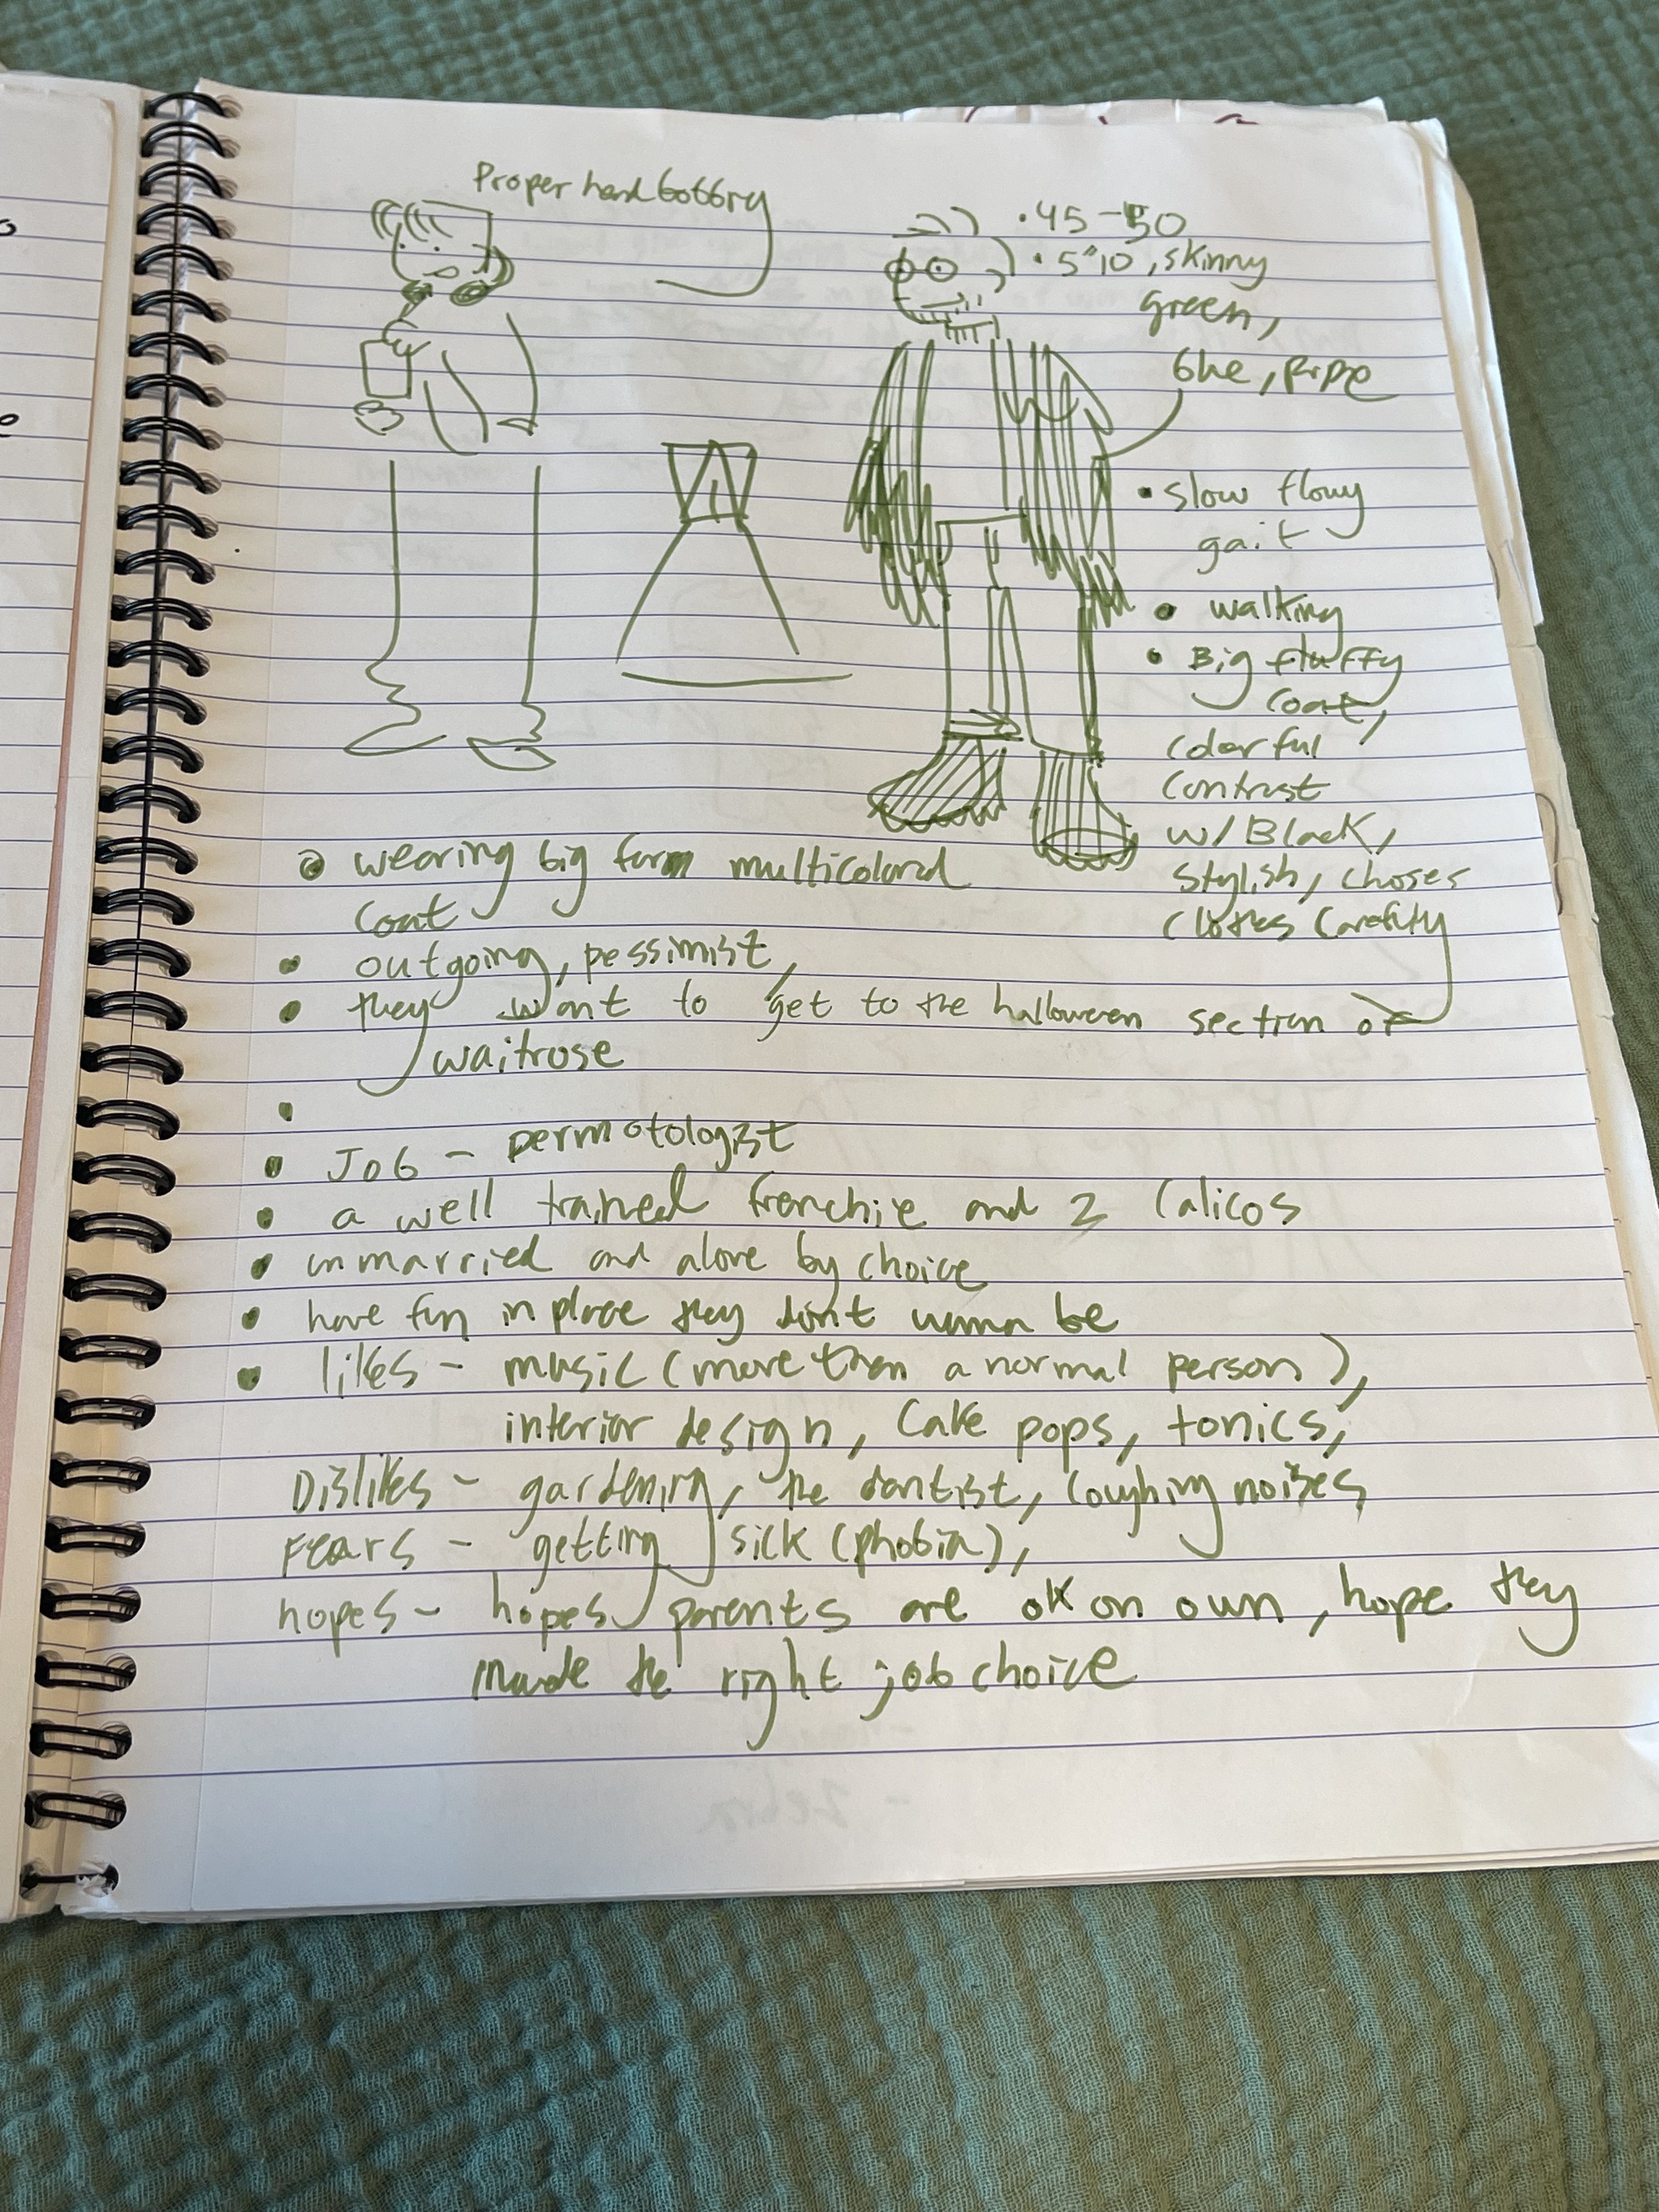 Proper hand
• 45 - 50
• 5"10, skinny
green,
blue, purple
• slow flowy
gait
• walking
• Big fluffy
coat,
colorful
contrast
w/ Black,
stylish, choses
clothes carefully
• wearing big multicolored
coat
• outgoing, pessimist,
• they want to get to the halloween section of
waitrose
•
• Job - Dermotologist
• a well trained frenchie and 2 calicos
• unmarried and alone by choice
• have fun in place they don't wanna be
• likes - music (more then a normal person),
interior design, cake pops, tonics,
Dislikes - gardening, the dentist, coughing noises
Fears - getting sick (phobia),
hopes - hopes parents are ok on own, hope they
made the right job choice